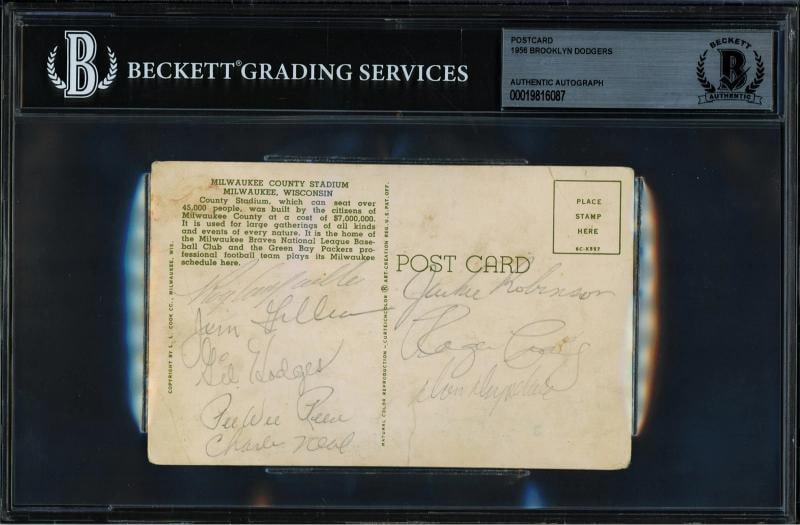 B
BECKETT® GRADING SERVICES
POSTCARD
1956 BROOKLYN DODGERS
AUTHENTIC AUTOGRAPH
00019816087
BECKETT
B
AUTHENTIC
MILWAUKEE COUNTY STADIUM
MILWAUKEE, WISCONSIN
County Stadium, which can seat over
45,000 people, was built by the citizens of
Milwaukee County at a cost of $7,000,000.
It is used for large gatherings of all kinds
and events of every nature. It is the home of
the Milwaukee Braves National League Base-
ball Club and the Green Bay Packers pro-
fessional football team plays its Milwaukee
schedule here.
COPYRIGHT BY L. L. COOK CO., MILWAUKEE, WIS.
Roy Campanella
Jim Gilliam
Gil Hodges
Pee Wee Reese
Charlie Neal
NATURAL COLOR REPRODUCTION - CURTEICHCOLOR ® ART-CREATION REG. U.S. PAT. OFF.
PLACE
STAMP
HERE
6C-K597
POST CARD
Jackie Robinson
Roger Craig
Don Drysdale